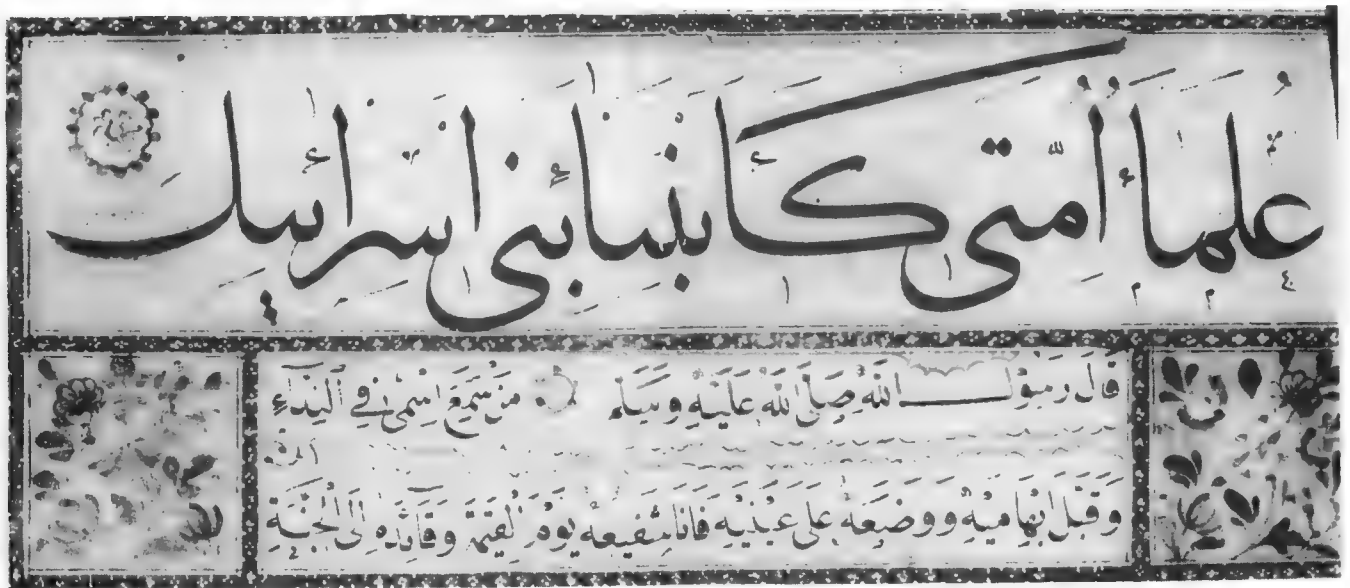 علماء أمتى كأنبياء بنى اسرائيل
قال رسول الله صلى الله عليه وسلم من سمع اسمى فى النداء
وقبل ابهاميه ووضعه على عينيه فانا شفيعه يوم القيمة وقائده الى الجنة